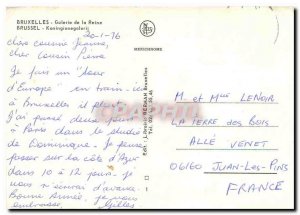 BRUXELLES - Galerie de la Reine
BRUSSEL - Koninginnegalerij
20-1-76
MERTZCHROME
chère cousine Jeanne,
cher Cousin Pierre
Je fais un "tour
d'Europe" en train - ici
à Bruxelles il pleut.
J'ai passé deux jours
à Paris dans le studio
de Dominique. Je pense
passer sur la côte d'Azur
dans 10 à 12 jours. Je
vous
Bonne Année, je vous
embrasse, Gilles
Bruxelles
13
M. et Mme LENOIR
LA TERRE DES BOIS
ALLÉ VENET
06160 JUAN-LES-PINS
FRANCE